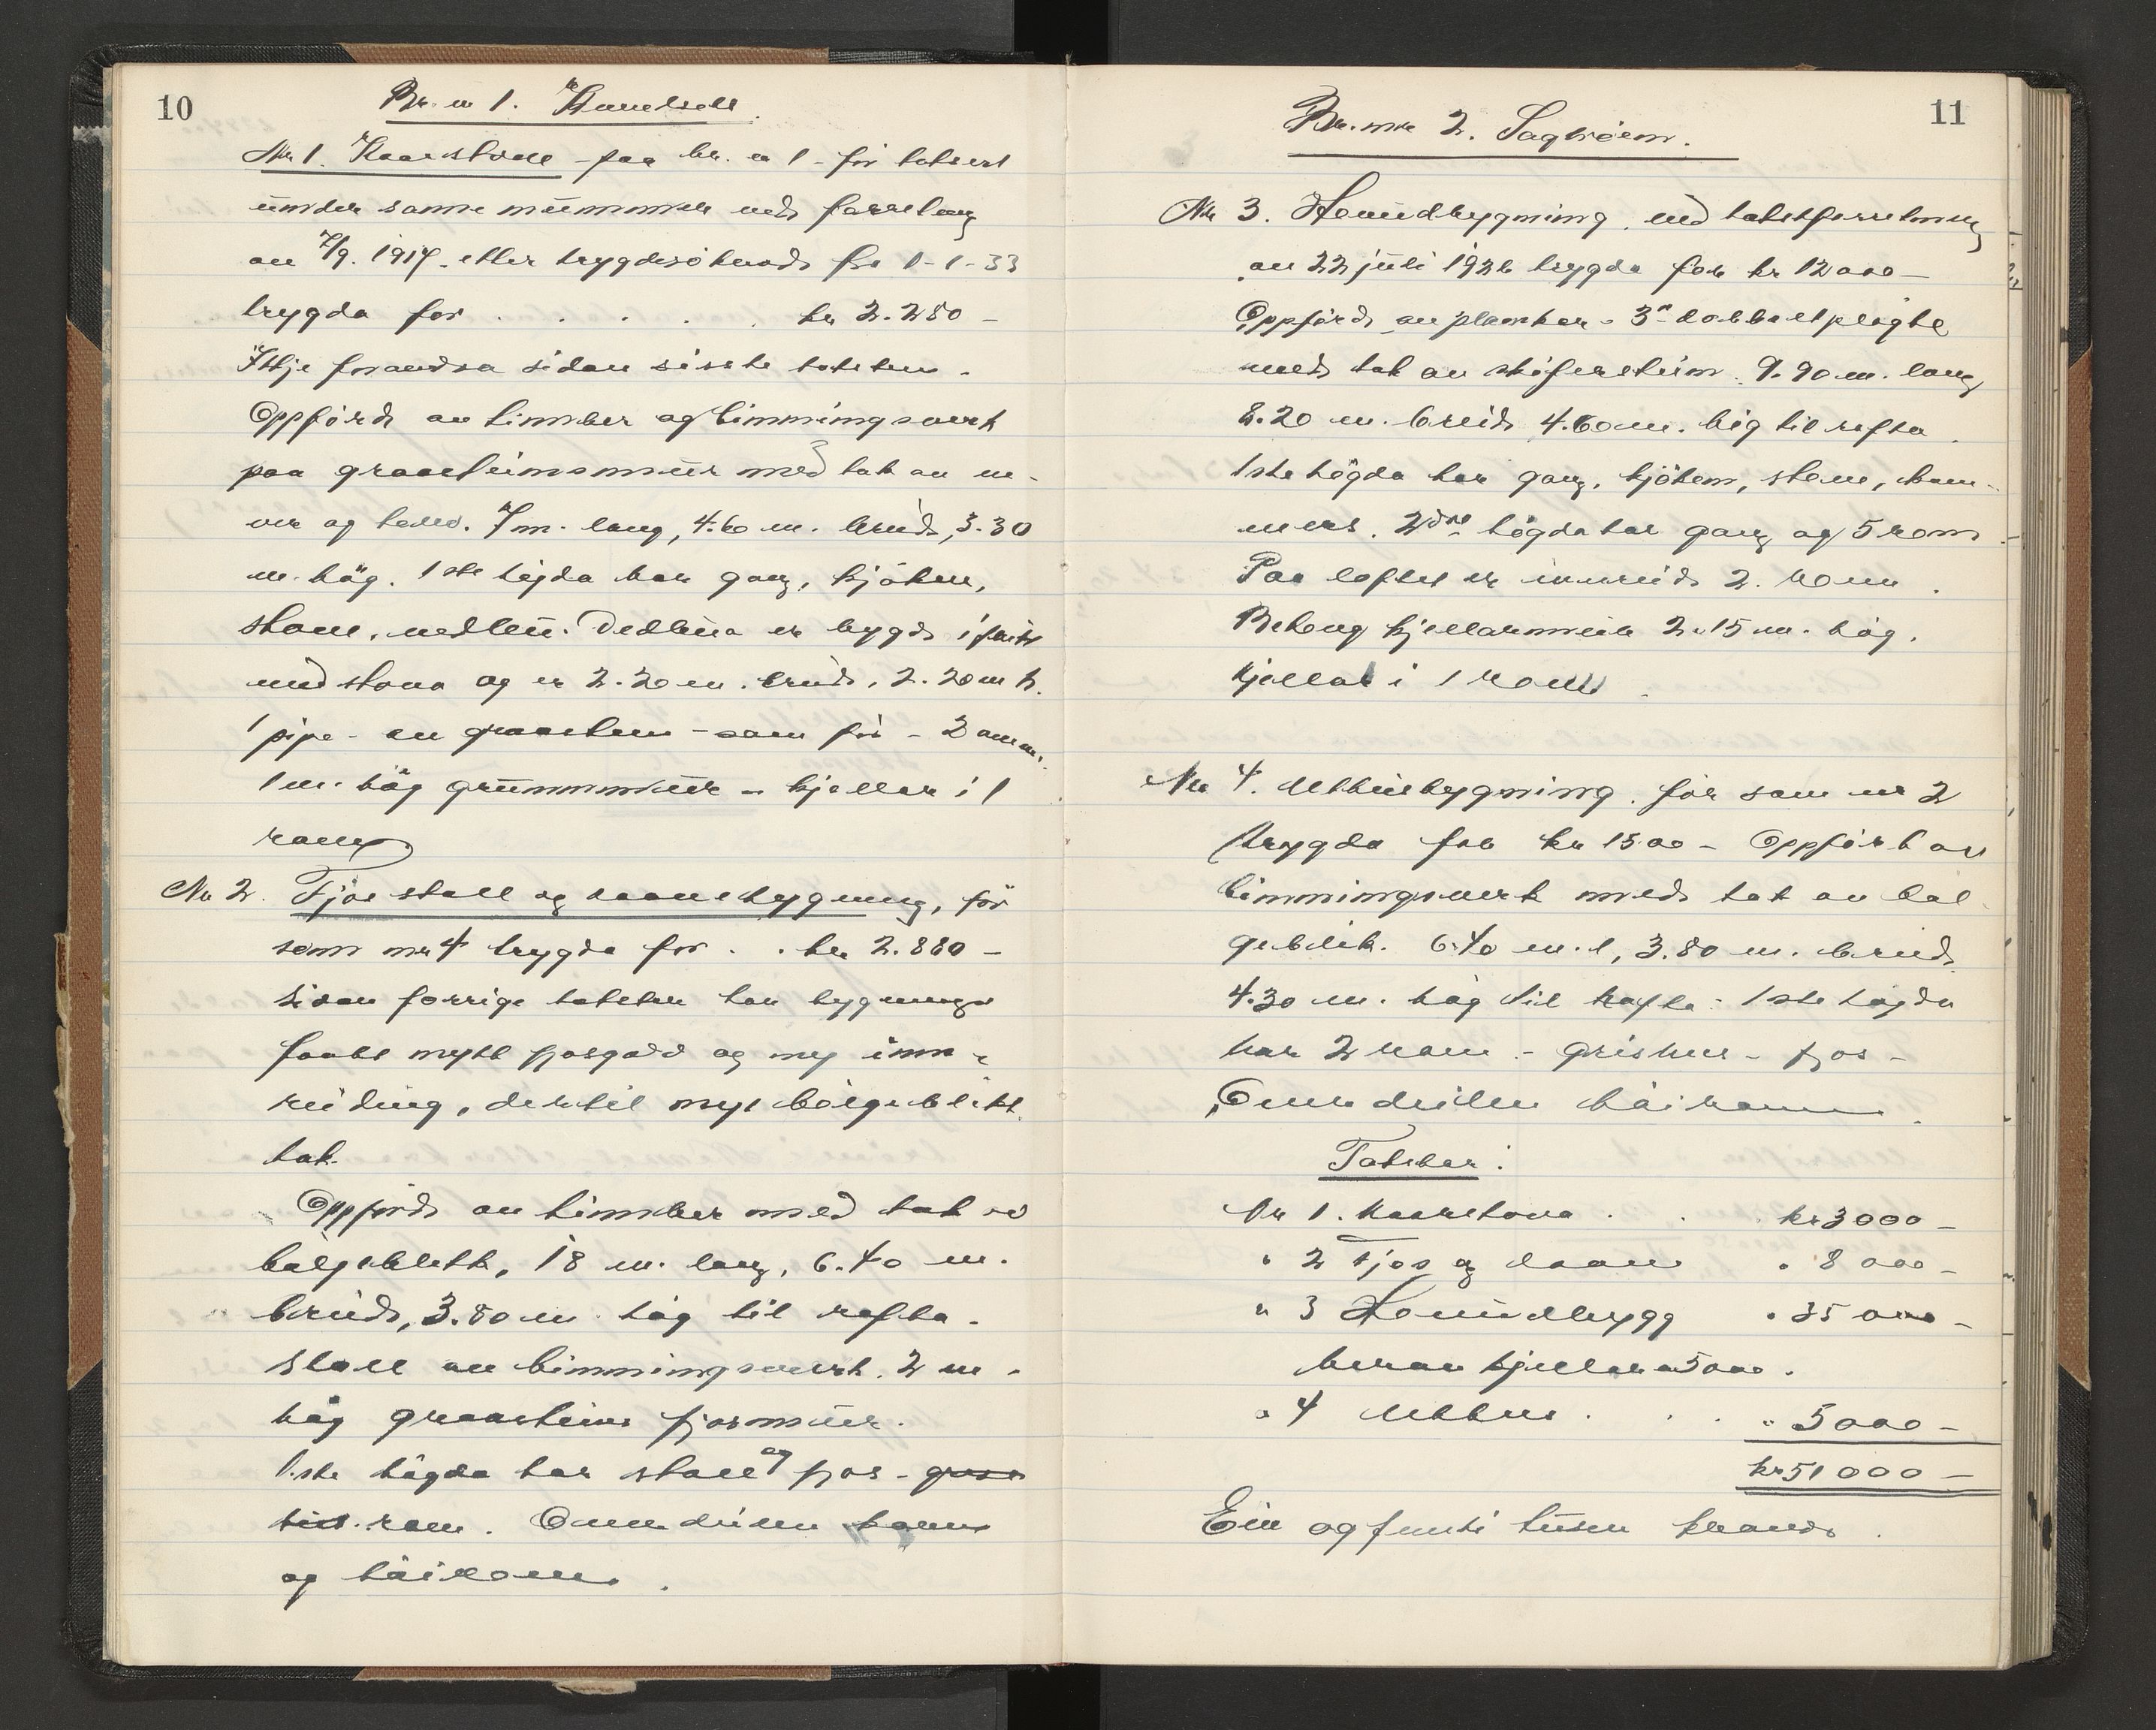 10
Br. nr 1.
Nr 1. Kaarstove - paa br. nr 1 - før taksert
under samme nummer ved forretning
av 7/9. 1917. etter trygdesøknad fra 1-1-33
trygda for . . . . . kr 2.280 -
Ikkje forandra sidan siste taksten.
Oppførd av timber og binningsverk
paa graasteinsmur med tak av ne-
ver og torv. 7 m. lang, 4.60 m. breid, 3.30
m. høg. 1ste høgda har gang, kjøken,
stove, vedbu. Vedbua er bygd i
med stova og er 2.20 m. breid, 2.20 m h.
1 pipe - av graastein - som før - 2 omnar.
1 m. høg grunnmur - kjellar i 1
rom
Nr 2. Fjøs stall og laavebygning, før
som nr 4 trygda for . . kr 2.880 -
Sidan forrige taksten har bygninga
faatt nytt fjosgolv og ny inn-
reiding, dertil nye bølgeblikk
tak.
Oppførd av timber med tak av
bølgeblikk, 18 m. lang, 6.40 m.
breid, 3.80 m. høg til rafta.
Stall av binningsverk. 2 m.
høg graasteins fjosmur.
1.ste høgda har stall og fjos -
rom. Ovendeilen
og høirom.
11
Br. nr 2. Sagtrøen.
Nr 3. Hovudbygning. ved takstforretning
av 22 juli 1926 trygda for kr 12000 -
Oppførd av plankar - 3" dobbelt pløgde
med tak av skiferstein. 9.90 m. lang
8.20 m. breid 4.60 m. høg til rafta.
1ste høgda har gang, kjøken, stove, kam-
mers. 2dre høgda har gang og 5 rom
Paa loftet er innreid 2. rom.
Betong kjellarmur 2.15 m. høg.
kjellar i 1 rom.
Nr 4. Uthusbygning. før som nr 2
trygda for kr 1500 - Oppført av
binningsverk med tak av bøl-
geblik. 6.40 m. l, 3.80 m. breid
4.30 m. høg til rafta: 1ste høgda
har 2 rom - grishus - fjos -
Ovendeilen høirom.
Takster:
Nr 1. Kaarstova . . kr 3000 -
" 2 Fjos og laave " 8000 -
" 3 Hovudbygg " 35000 -
herav kjellar 5000.
" 4 Uthus . . . " 5000 -
kr 51000 -
Ein og femti tusen kroner.